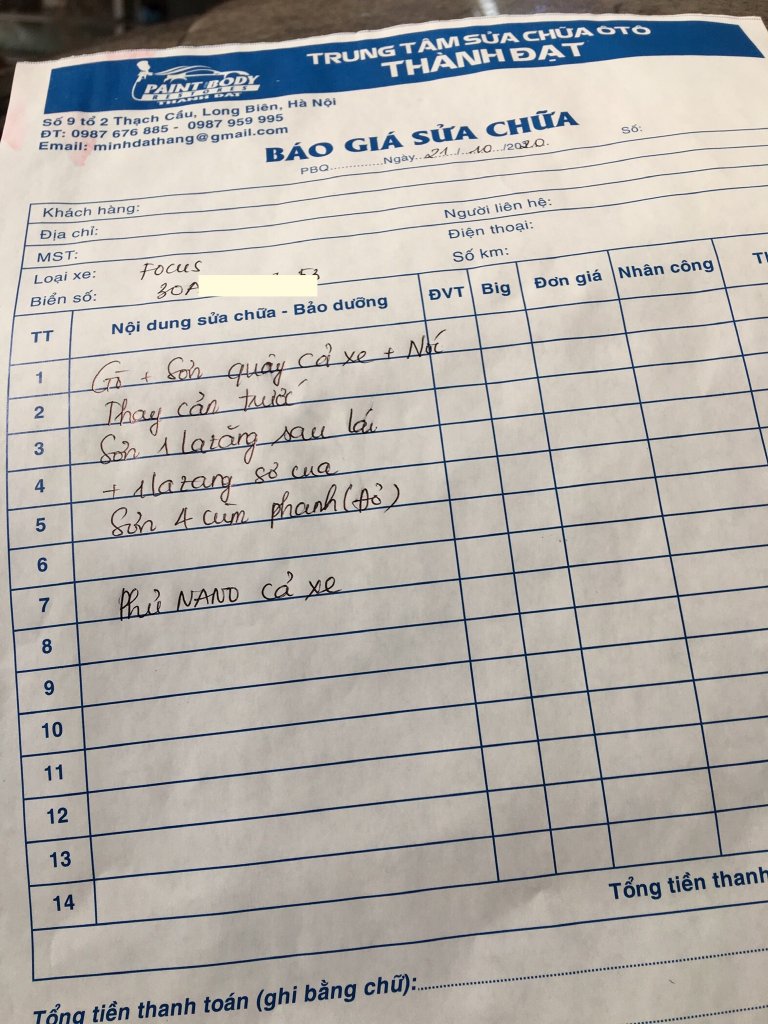 TRUNG TÂM SỬA CHỮA ÔTÔ
THÀNH ĐẠT
PAINT BODY
RESTORES
THANH DAT
Số 9 tổ 2 Thạch Cầu, Long Biên, Hà Nội
ĐT: 0987 676 885 - 0987 959 995
Email: minhdathang@gmail.com
BÁO GIÁ SỬA CHỮA
PBQ............Ngày..21../..10.../2020.
Số:
Khách hàng:
Người liên hệ:
Địa chỉ:
Điện thoại:
MST:
Số km:
Loại xe: FOCUS
Biển số: 30A
TT Nội dung sửa chữa - Bảo dưỡng ĐVT Big Đơn giá Nhân công
1 Gò + Sơn quây cả xe + Nóc
2 Thay cản trước
3 Sơn 1 lazăng sau lái
4 + 1 lazang sơ cua
5 Sơn 4 cùm phanh (Đỏ)
6
7 Phủ NANO cả xe
8
9
10
11
12
13
14
Tổng tiền thanh
Tổng tiền thanh toán (ghi bằng chữ):